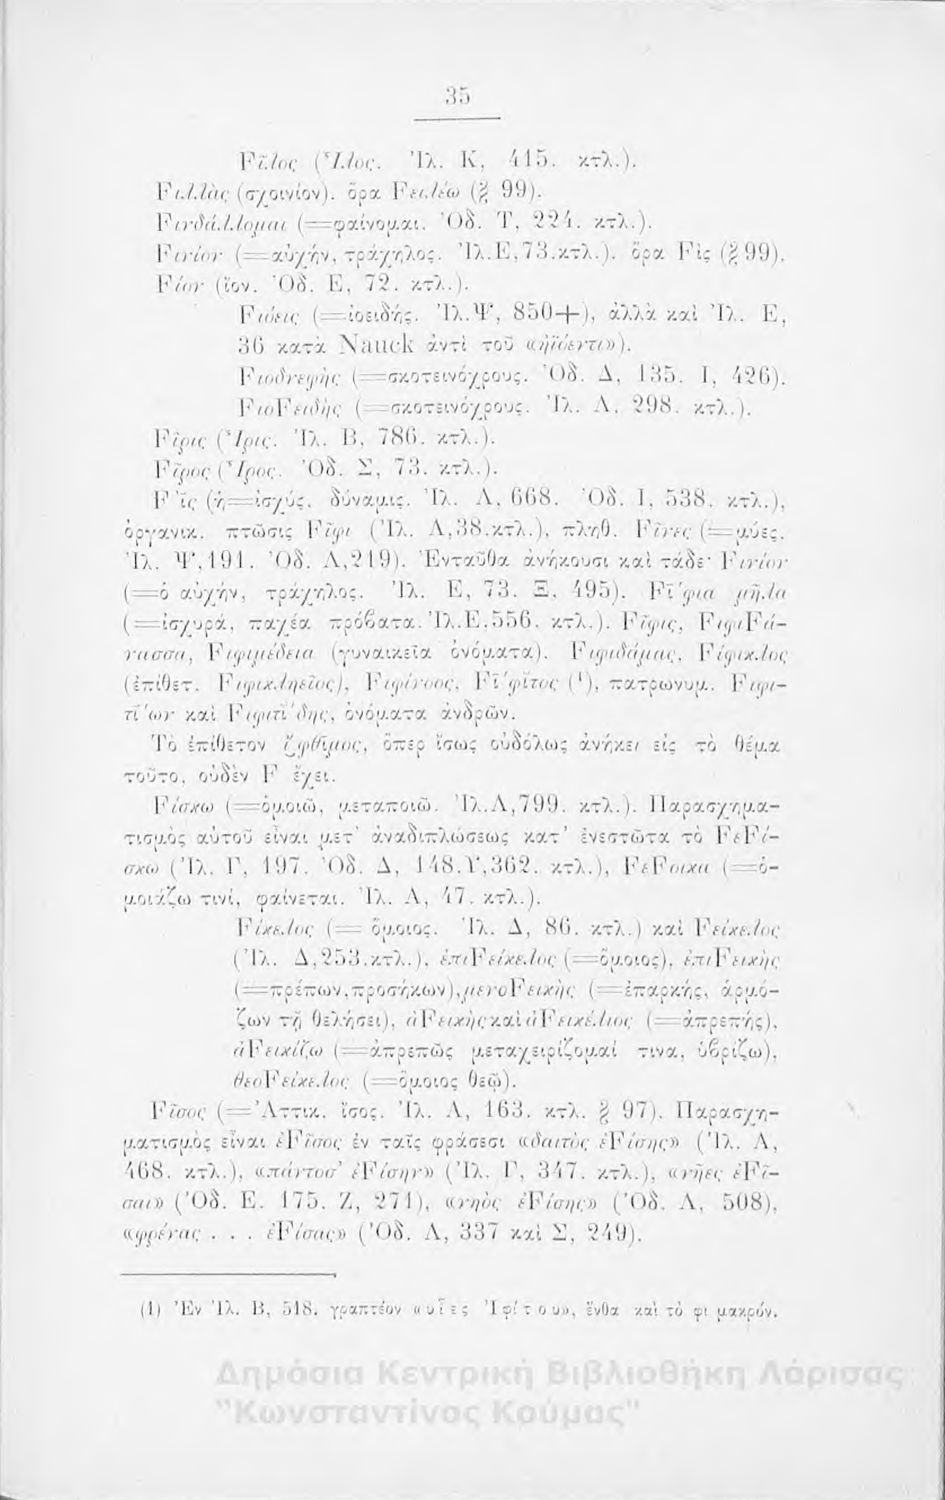 35
Fῖλος (Ἶλος. Ἰλ. Κ, 415. κτλ.).
Fιλλὰς (σχοινίον). ὅρα Fειλέω (§ 99).
Fινδάλλομαι (=φαίνομαι. Ὀδ. Τ, 224. κτλ.).
Fινίον (=αὐχήν, τράχηλος. Ἰλ.Ε,73.κτλ.). ὅρα Fὶς (§ 99).
Fίον (ἴον. Ὀδ. Ε, 72. κτλ.).
Fιόεις (=ἰοειδής. Ἰλ.Ψ, 850+), ἀλλὰ καὶ Ἰλ. Ε,
36 κατὰ Nauck ἀντὶ τοῦ «ἠϊόεντι»).
Fιοδνεφὴς (=σκοτεινόχρους. Ὀδ. Δ, 135. Ι, 426).
FιοFειδὴς (=σκοτεινόχρους. Ἰλ. Λ, 298. κτλ.).
Fῖρις (Ἶρις. Ἰλ. Β, 786. κτλ.).
Fῖρος (Ἶρος. Ὀδ. Σ, 73. κτλ.).
F ῒς (ἡ=ἰσχύς, δύναμις. Ἰλ. Λ, 668. Ὀδ. Ι, 538. κτλ.),
ὀργανικ. πτῶσις Fῖφι (Ἰλ. Α,38.κτλ.), πληθ. Fῖνες (=μύες.
Ἰλ. Ψ,191. Ὀδ. Λ,219). Ἐνταῦθα ἀνήκουσι καὶ τάδε· Fινίον
(=ὁ αὐχήν, τράχηλος. Ἰλ. Ε, 73. Ξ, 495). Fῑ́φια μῆλα
(=ἰσχυρά, παχέα πρόβατα. Ἰλ.Ε,556. κτλ.). Fῖφις, FιφιFά-
νασσα, Fιφιμέδεια (γυναικεῖα ὀνόματα). Fιφιδάμας, Fίφικλος
(ἐπίθετ. Fιφικληεῖος), Fιφίνοος, Fῑ́φῐτος (¹), πατρωνυμ. Fιφι-
τῑ́ων καὶ Fιφιτῑ́δης, ὀνόματα ἀνδρῶν.
Τὸ ἐπίθετον ἴφθῑμος, ὅπερ ἴσως οὐδόλως ἀνήκει εἰς τὸ θέμα
τοῦτο, οὐδὲν F ἔχει.
Fίσκω (=ὁμοιῶ, μεταποιῶ. Ἰλ.Λ,799. κτλ.). Παρασχημα-
τισμὸς αὐτοῦ εἶναι μετ' ἀναδιπλώσεως κατ' ἐνεστῶτα τὸ FεFί-
σκω (Ἰλ. Γ, 197. Ὀδ. Δ, 148.Υ,362. κτλ.), FέFοικα (=ὁ-
μοιάζω τινί, φαίνεται. Ἰλ. Α, 47. κτλ.).
Fίκελος (= ὅμοιος. Ἰλ. Δ, 86. κτλ.) καὶ Fείκελος
(Ἰλ. Δ,253.κτλ.), ἐπιFείκελος (=ὅμοιος), ἐπιFεικὴς
(=πρέπων,προσήκων),μενοFεικὴς (=ἐπαρκής, ἁρμό-
ζων τῇ θελήσει), ἀFεικὴς καὶ ἀFεικέλιος (=ἀπρεπής),
ἀFεικίζω (=ἀπρεπῶς μεταχειρίζομαί τινα, ὑβρίζω),
θεοFείκελος (=ὅμοιος θεῷ).
Fῖσος (=Ἀττικ. ἴσος. Ἰλ. Α, 163. κτλ. § 97). Παρασχη-
ματισμὸς εἶναι ἐFῖσος ἐν ταῖς φράσεσι «δαιτὸς ἐFίσης» (Ἰλ. Α,
468. κτλ.), «πάντοσ' ἐFίσην» (Ἰλ. Γ, 347. κτλ.), «νῆες ἐFῖ-
σαι» (Ὀδ. Ε. 175. Ζ, 271), «νηὸς ἐFίσης» (Ὀδ. Λ, 508),
«φρένας . . . ἐFίσας» (Ὀδ. Λ, 337 καὶ Σ, 249).
(1) Ἐν Ἰλ. Β, 518. γραπτέον «υἷες Ἰφίτου», ἔνθα καὶ τὸ φι μακρόν.
Δημόσια Κεντρική Βιβλιοθήκη Λάρισας
"Κωνσταντίνος Κούμας"